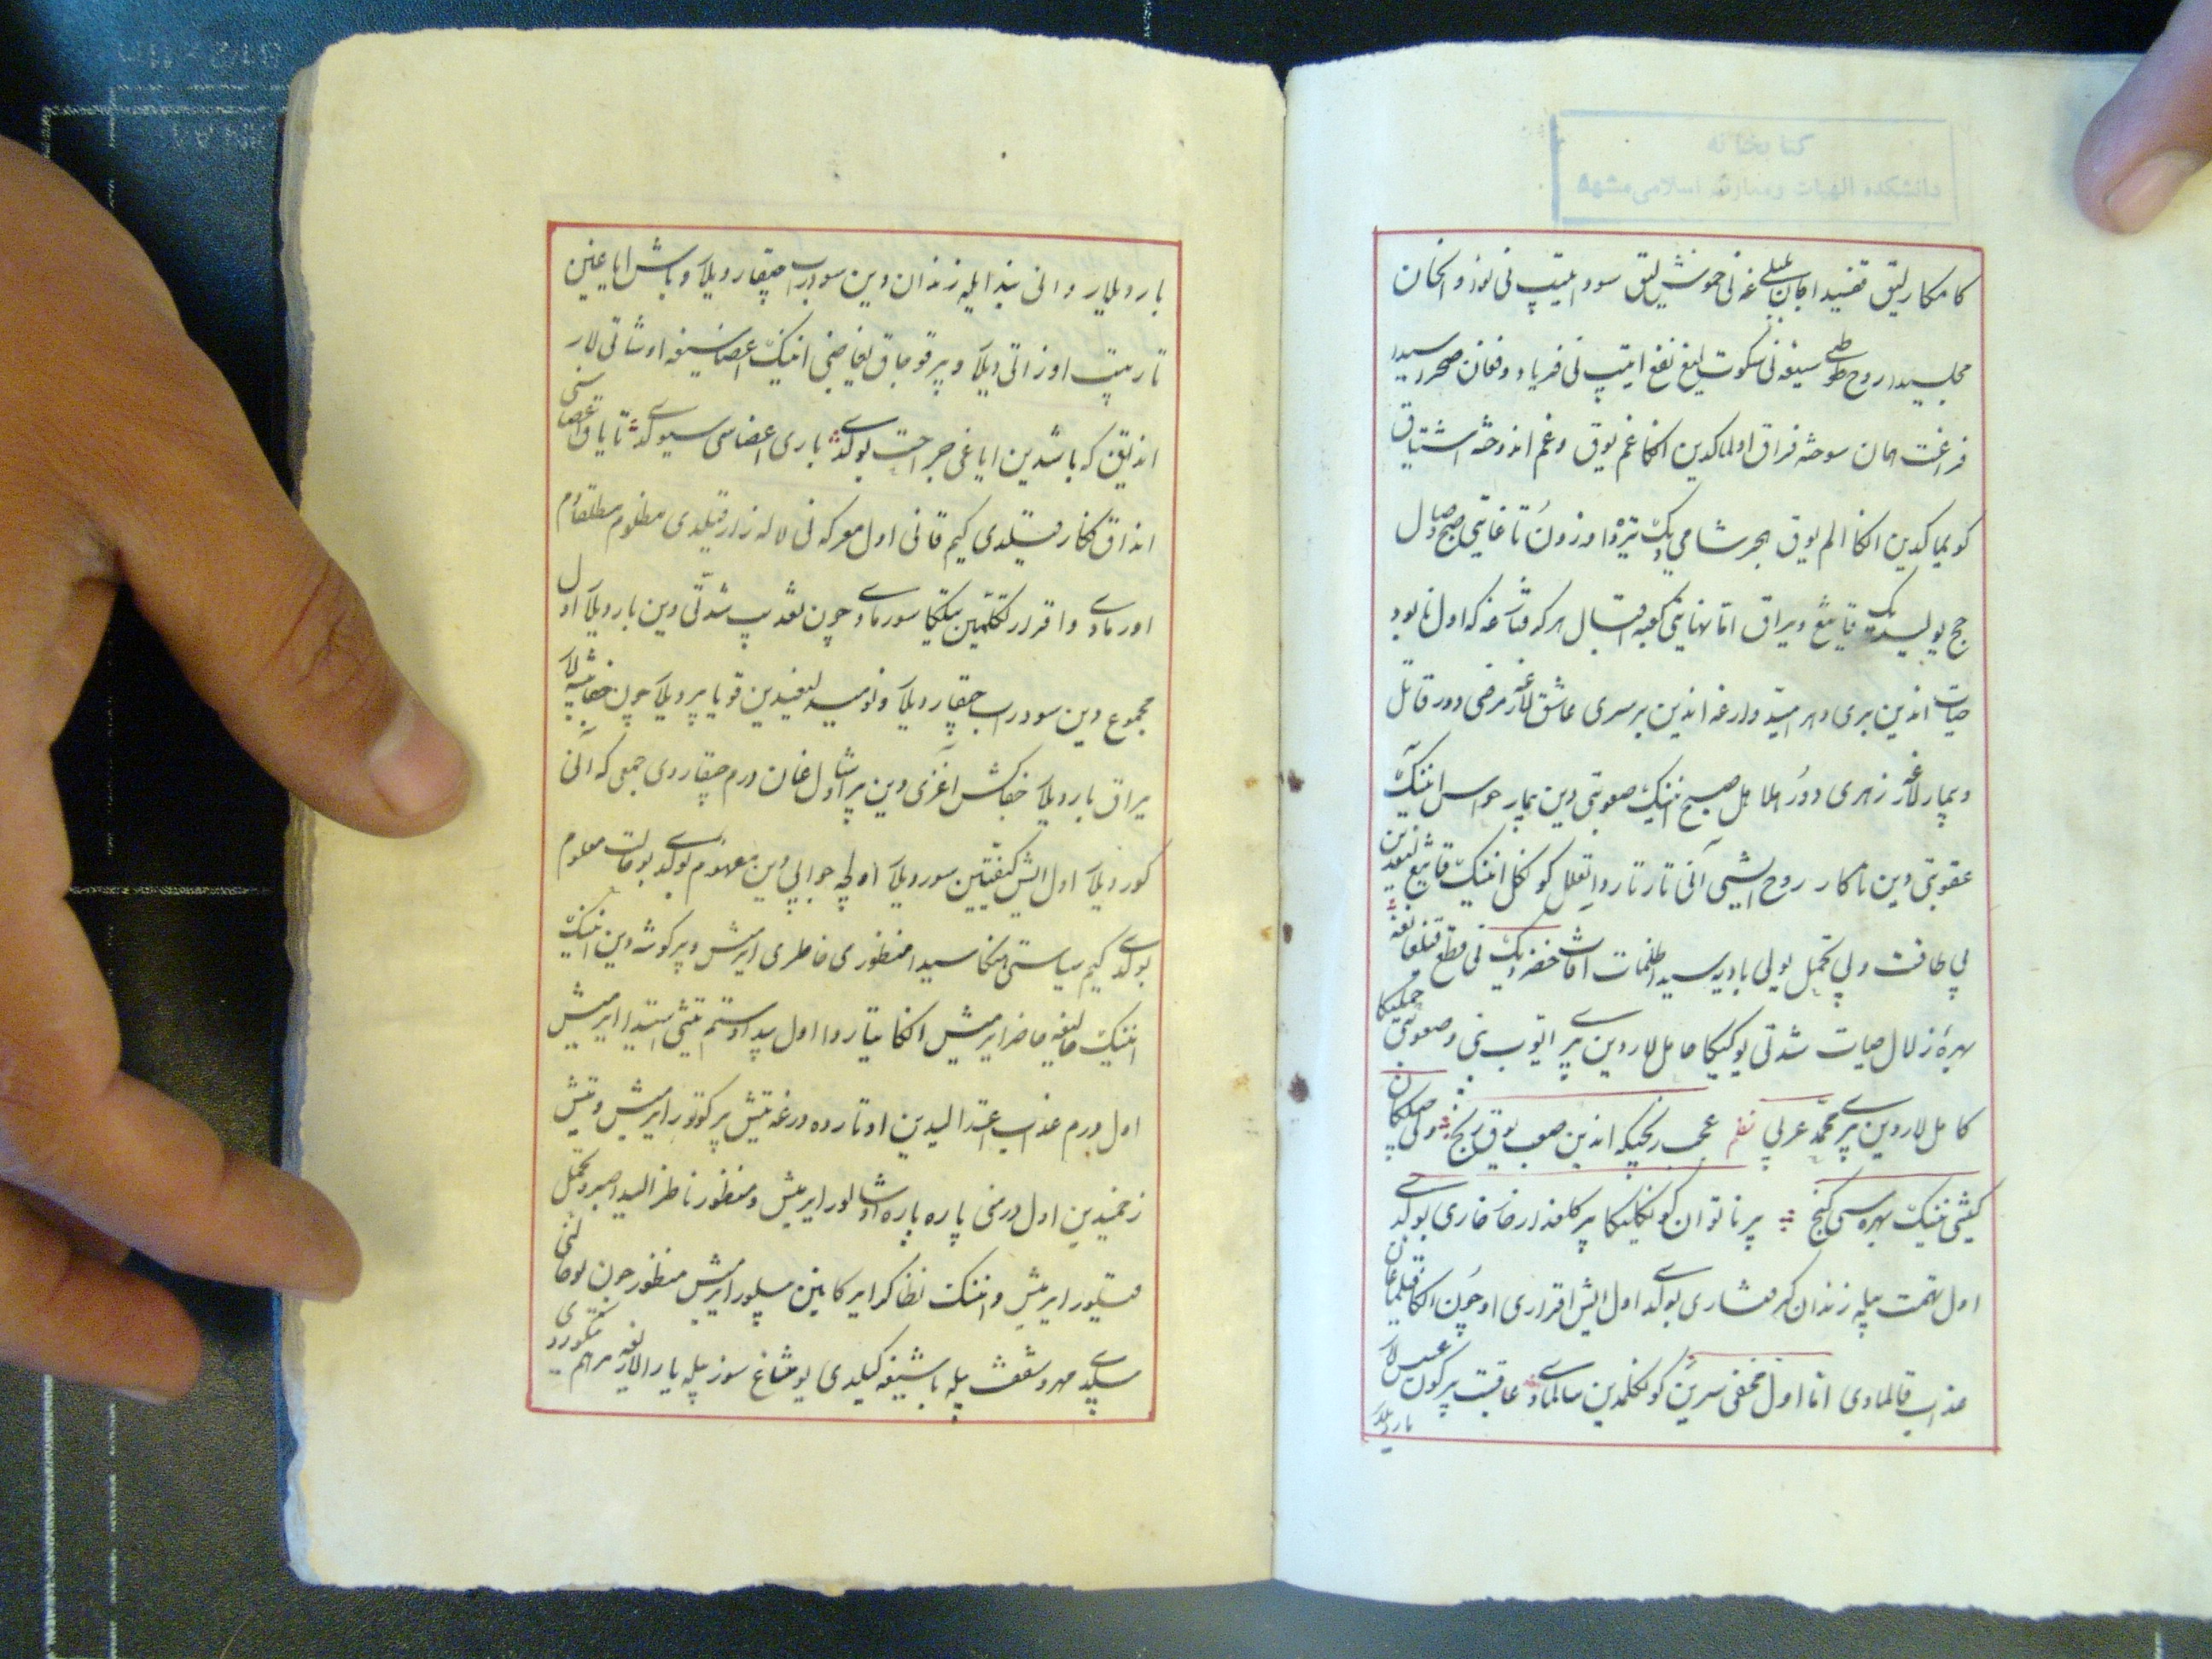 کتابخانه
دانشکده الهیات ومعارف اسلامی مشهد
کامکارلیق قفسیدا جان بلبلی غه نی خموشلیق سود ایتیپ نی نوذ و الحان
مجلسیدا روح طوطی سیغه نی سکوت لیغ نفع ایتیپ نی فریاد و فغان صحراسیدا
فراغت همان سوخته فراق اولماکدین انکا غم یوق و غم اندوخته اشتیاق
کویماکدین انکا الم یوق هجر شامی دیک تیره اوزون تا غایتی صبح وصال
حج یولیدیک قاتیغ و یراق اتا نهایتی کعبه اقبال هر کوفتا غه که اول نابود
حیات اندین بری و هر امیدوارغه اندین برسری عاشق لارغه مرضی دور قاتل
و بیمارلارغه زهری دور هلاهل صبح انینک صعوبتی دین بیمار حواس انینک
عقوبتی دین ناکار روح ایشی آنی تارتاردا تعلل کونکل انینک قاتیغ لیغیدین
بی طاقت و بی تحمل یولی بادیه سیدا ظلمات آفات خضر دیک نی قطع قیلغانغه
بهره زلال حیات شدتی یوکیکا حامل لاردین بیری ایوب نبی و صعوبتی حملیکا
کامل لاردین بیری محمد عربی نظم عجب رنجیکه اندین صعب یوق رنج ولی چیککان
کیشی نینک بهره سی گنج پر ناتوان کونکلیکا پر گلعذاردا خاری بولدی
اول تهمت بیله زندان گرفتاری بولدی اول ایش اقراری اوچون انکا قیلماغان
عذاب قالمادی اما اول مخفی سرین کونکلدین سالمادی عاقبت بیر کون عسس لار
باردیلار
باردیلار و انی بند ایله زندان دین سودراب چیقاردیلار و باش ایاغین
تارتیب اوزاتی دیلار و بیر قوجاق یغاچنی انینک اعضاسیغه اوشاتی لار
انداق که باشدین ایاغی جراحت بولدی باری اعضاسی سیولدی تایاق اعضاسنی
انداق فکار قیلدی کیم قانی اول معرکه نی لاله زار قیلدی مظلوم مطلقا دم
اورمادی و اقرار تکلمین تیلیکا سورمادی چون تعذیب شدتی دین باردیلار اول
مجموع دین سودراب چیقاردیلار و نومید لیغیدین قویا بیردیلار چون خفاشنی لار
یراق باردیلار خفاکش آغزی دین بیر اوشال غان درم چیقاردی جمعی که آنی
کوردیلار اول ایش کیفیتین سوردیلار اولچه جوابی دین مفهوم بولدی بو حالت معلوم
بولدی کیم سیاستی هنکامسیدا منظوری خاطری ایرمیش و بیر گوشه دین انینک
انینک حالیغه حاضر ایرمیش انکا یتاردا اول بیداد و ستم تیشی استیدا ایرمیش
اول درم عذاب اعتدالیدین اوتارده درغه تیش بیر کوتور ایرمیش و تیش
زخمیدین اول درمنی پاره پاره اوشالور ایرمیش و منظور ناظر الیدا صبر و تحمل
قیلور ایرمیش و انینک نظاکر ایرکانین بیلور ایرمیش منظور چون بو حالتنی
بیلدی مهر و شفقت بیله باشیغه کیلدی یومشاغ سوز بیله یارالاریغه مرهم